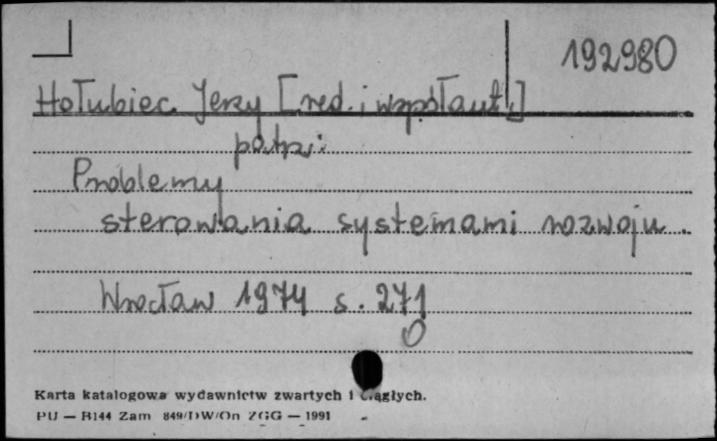 192980
Hołubiec Jerzy [red. i współaut.]
patrz:
Problemy
sterowania systemami rozwoju.
Wrocław 1974 s. 271
Karta katalogowa wydawnictw zwartych i ciągłych.
PU — B144 Zam 849/DW/On ZGG — 1991